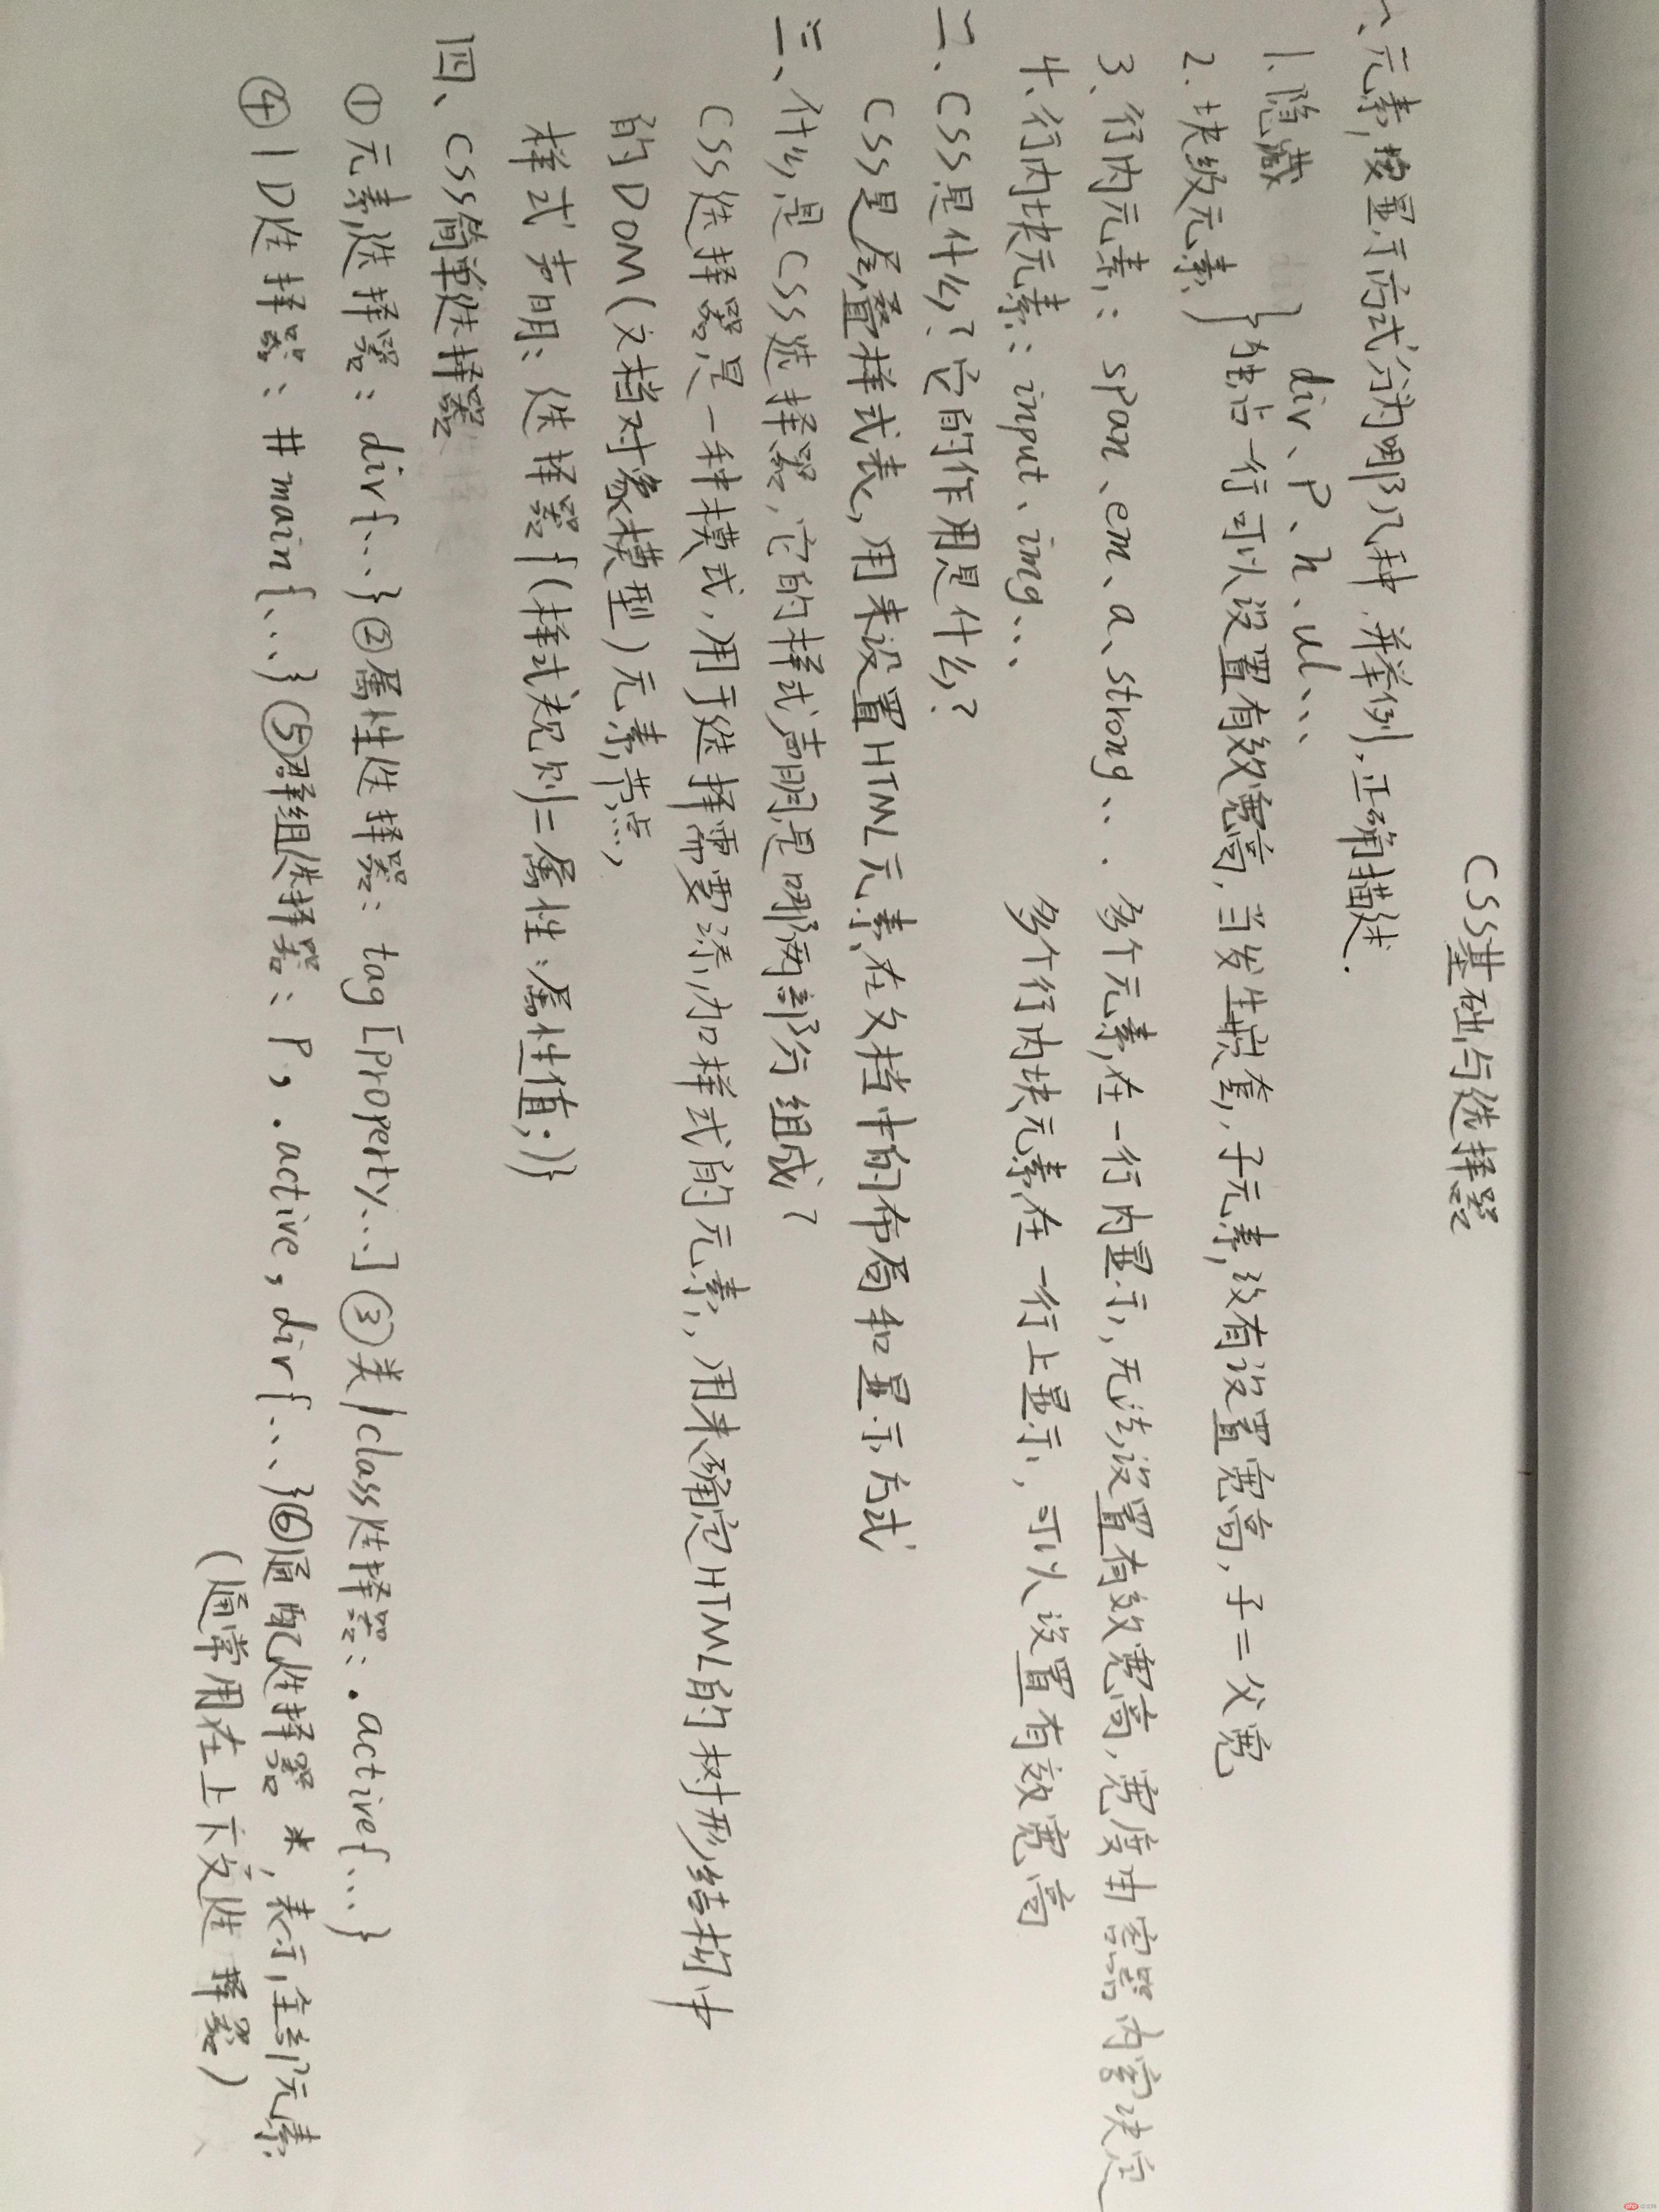 CSS基础与选择器
一、元素,按显示方式分为哪几种,并举例,正确描述.
div、P、h、ul、、、
1、隐藏
2、块级元素 }独占一行可以设置有效宽高,当发生嵌套,子元素,没有设置宽高,子=父宽
3、行内元素: span、em、a、strong、、. 多个元素,在一行内显示,无法设置有效宽高,宽度由容器内容决定
4、行内块元素: input、img、、、 多个行内块元素,在一行上显示,可以设置有效宽高
二、CSS是什么?它的作用是什么?
CSS是层叠样式表,用来设置HTML元素,在文档中的布局和显示方式
三、什么是CSS选择器,它的样式声明是哪两部分组成?
CSS选择器是一种模式,用于选择需要添加样式的元素,用来确定HTML的树形结构中
的DOM(文档对象模型)元素节点,
样式声明:选择器{(样式规则=属性:属性值;)}
四、CSS简单选择器
①元素选择器: div{、、、}②属性选择器: tag[property...]③类/class选择器: .active{...}
④ID选择器: #main{、、、}⑤群组选择器: P, .active, dir{、、、}⑥通配选择器 *,表示全部元素
(通常用在上下文选择器)
php 中文网